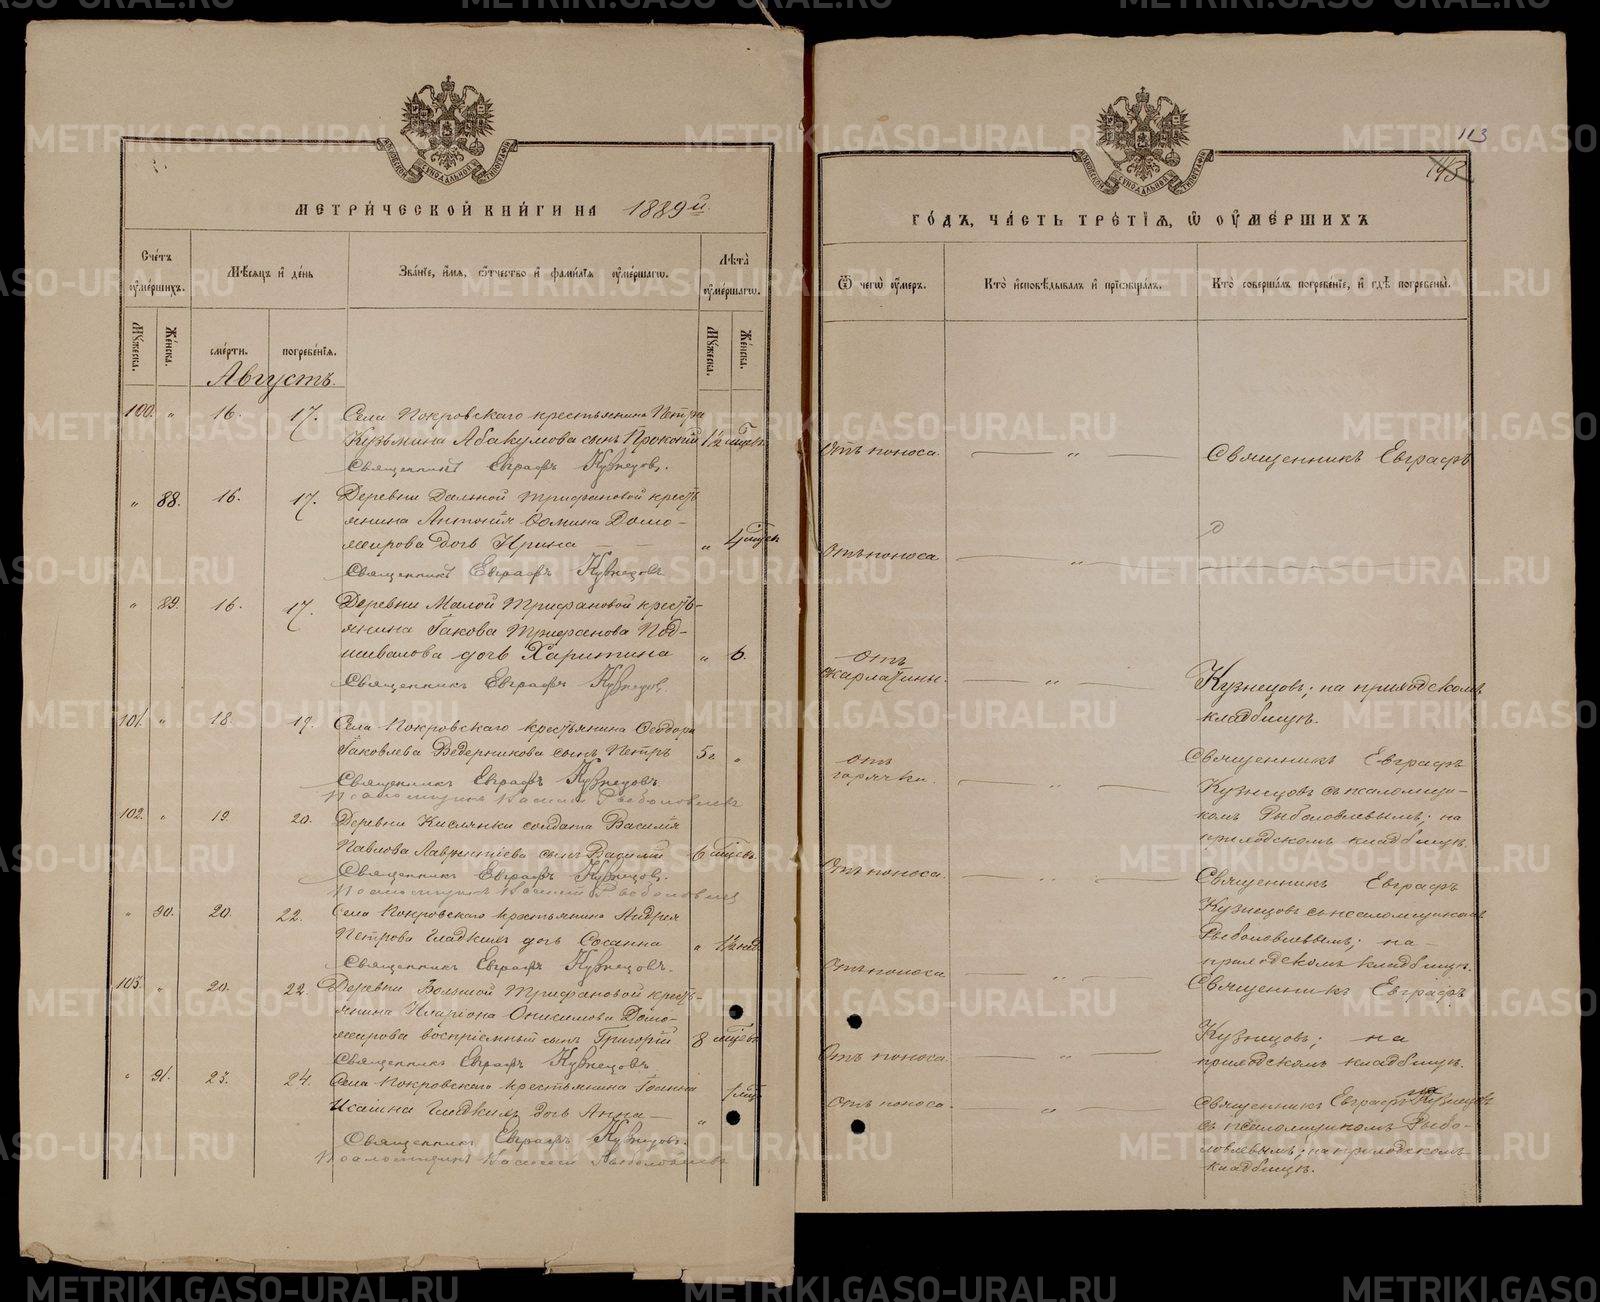 113
143
МЕТРИЧЕСКОЙ КНИГИ НА 1889й.
Счетъ умершихъ.
Мѣсяцъ и день
Званіе, имя, отчество и фамилія умершаго.
Лѣта умершаго.
Мужеска.
Женска.
смерти.
погребенія.
Мужеска.
Женска.
Августъ.
100. " 16. 17. Села Покровскаго крестьянина Петра
Кузьмина Абакумова сынъ Прокопій 1½ мѣсяц.
Священникъ Евграфъ Кузнецовъ.
" 88. 16. 17. Деревни Дальной Трифановой кресть
янина Антонія Ѳомина Домо-
жирова дочь Ирина " 4 мѣсяц
Священникъ Евграфъ Кузнецовъ
" 89. 16. 17. Деревни Малой Трифановой кресть-
янина Іакова Трифанова Под-
шивалова дочь Харитина " 6.
Священникъ Евграфъ Кузнецов.
101. " 18. 19. Села Покровскаго крестьянина Ѳеодора
Іаковлева Ведерникова сынъ Петръ "
Священникъ Евграфъ Кузнецовъ.
Псаломщикъ Василій Рыболовлевъ
102. " 19. 20. Деревни Кислянки солдата Василія
Павлова Лаврентіева сынъ Василій 6 мѣсяц.
Священникъ Евграфъ Кузнецовъ.
Псаломщикъ Василій Рыболовлев
" 90. 20. 22. Села Покровскаго крестьянина Андрея
Петрова Гладкихъ дочь Сосанна " 1½ нед.
Священникъ Евграфъ Кузнецовъ.
103. " 20. 22. Деревни Большой Трифановой кресть-
янина Иларіона Онисимова Домо-
жирова воспріемный сынъ Григорій 8 мѣсяц.
Священникъ Евграфъ Кузнецовъ
" 91. 23. 24. Села Покровскаго крестьянина Іоанна
Исаіина Гладкихъ дочь Анна " 1 мѣс
Священникъ Евграфъ Кузнецовъ.
Псаломщикъ Василій Рыболовлевъ
ГОДЪ, ЧАСТЬ ТРЕТІЯ, Ѡ УМЕРШИХЪ
Ѿ чего умеръ.
Кто исповѣдывалъ и пріобщалъ.
Кто совершалъ погребеніе, и гдѣ погребены.
Отъ поноса. " Священникъ Евграфъ
Отъ поноса "
отъ
скарлатины. " Кузнецовъ; на приходскомъ
кладбищѣ.
отъ
горячки. " Священникъ Евграфъ
Кузнецовъ съ псаломщи-
комъ Рыболовлевымъ; на
приходскомъ кладбищѣ.
Отъ поноса. " Священникъ Евграфъ
Кузнецовъ съ псаломщикомъ
Рыболовлевымъ; на
приходскомъ кладбищѣ.
Отъ поноса " Священникъ Евграфъ
Отъ поноса. " Кузнецовъ; на
приходскомъ кладбищѣ.
Отъ поноса. " Священникъ Евграфъ Кузнецовъ
съ псаломщикомъ Рыбо-
ловлевымъ; на приходскомъ
кладбищѣ.
METRIKI.GASO-URAL.RU